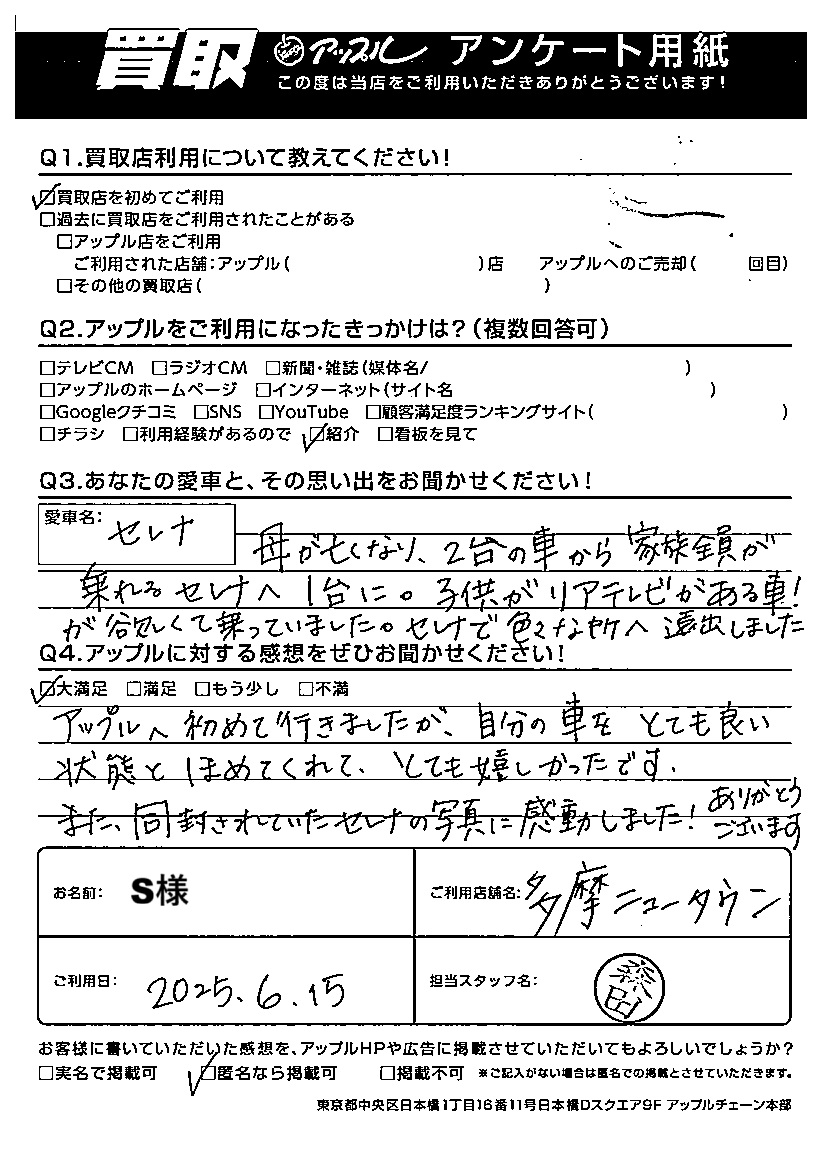 買取 アップル アンケート用紙
この度は当店をご利用いただきありがとうございます！
Q1.買取店利用について教えてください！
☑買取店を初めてご利用
□過去に買取店をご利用されたことがある
□アップル店をご利用
ご利用された店舗：アップル（　　　）店　アップルへのご売却（　　　回目）
□その他の買取店（　　　）
Q2.アップルをご利用になったきっかけは？（複数回答可）
□テレビCM　□ラジオCM　□新聞・雑誌（媒体名/　　　）
□アップルのホームページ　□インターネット（サイト名　　　）
□Googleクチコミ　□SNS　□YouTube　□顧客満足度ランキングサイト（　　　）
□チラシ　□利用経験があるので　☑紹介　□看板を見て
Q3.あなたの愛車と、その思い出をお聞かせください！
愛車名：セレナ
母が亡くなり、2台の車から家族全員が
乗れるセレナへ1台に。子供がリアテレビがある車！
が欲しくて乗っていました。セレナで色々な所へ遠出しました
Q4.アップルに対する感想をぜひお聞かせください！
☑大満足　□満足　□もう少し　□不満
アップルへ初めて行きましたが、自分の車をとても良い
状態とほめてくれて、とても嬉しかったです.
また、同封されていたセレナの写真に感動しました！ありがとう
ございます
お名前：S様
ご利用店舗名：多摩ニュータウン
ご利用日：2025.6.15
担当スタッフ名：
お客様に書いていただいた感想を、アップルHPや広告に掲載させていただいてもよろしいでしょうか？
□実名で掲載可　☑匿名なら掲載可　□掲載不可　※ご記入がない場合は匿名での掲載とさせていただきます。
東京都中央区日本橋1丁目16番11号日本橋Dスクエア9F アップルチェーン本部